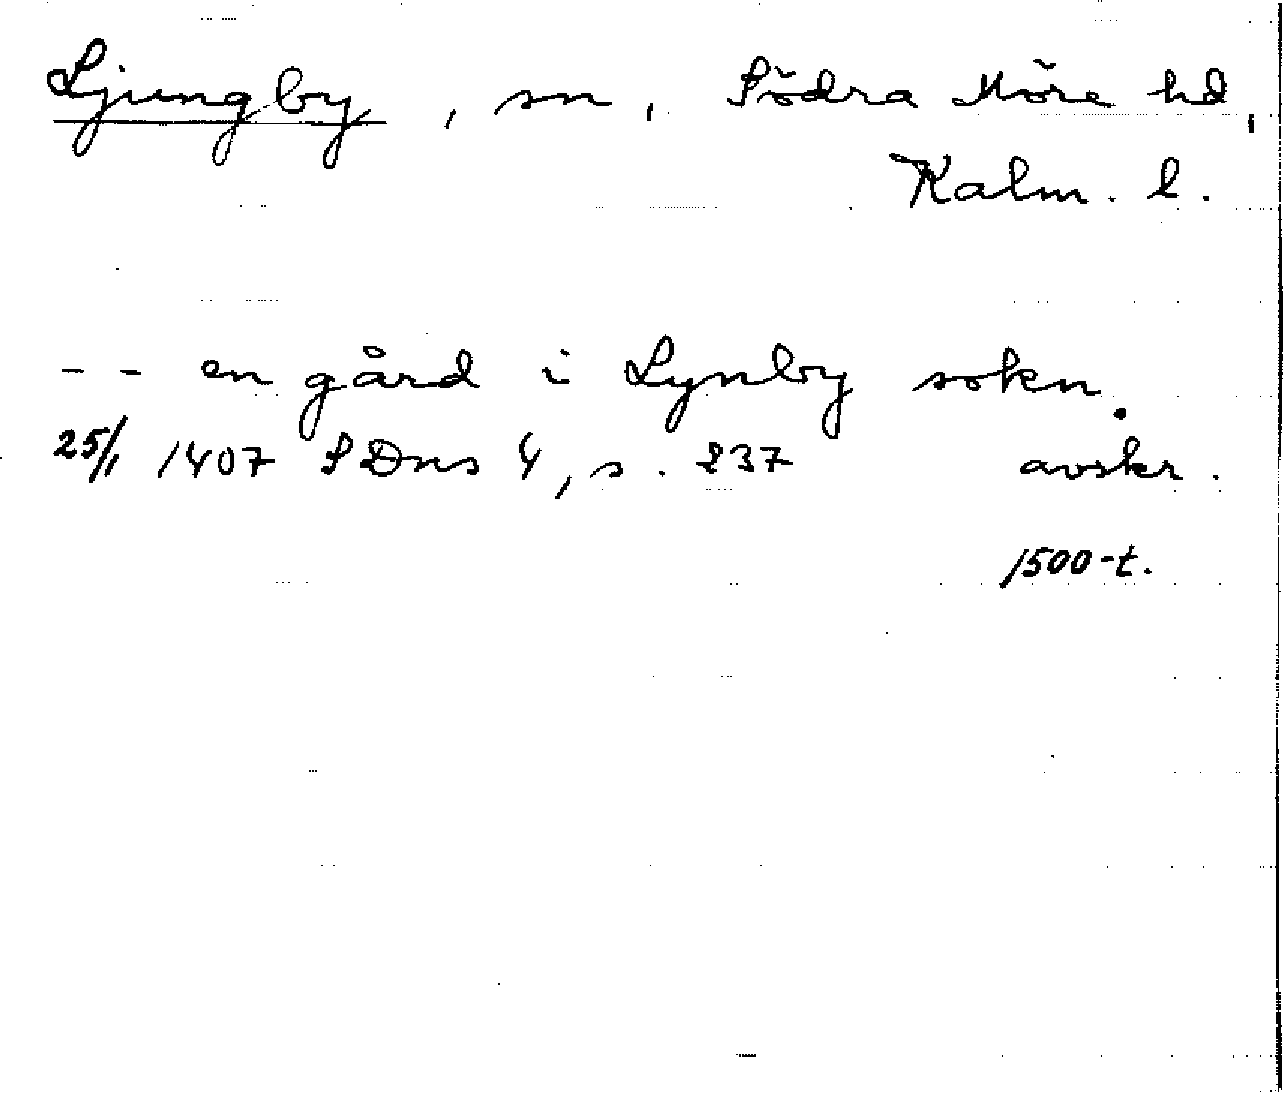 Ljungby, sn, Södra Möre hd,
Kalm. l.
-- en gård i Lynby sokn.
25/1 1407 SDns 4, s. 237 avskr.
1500-t.